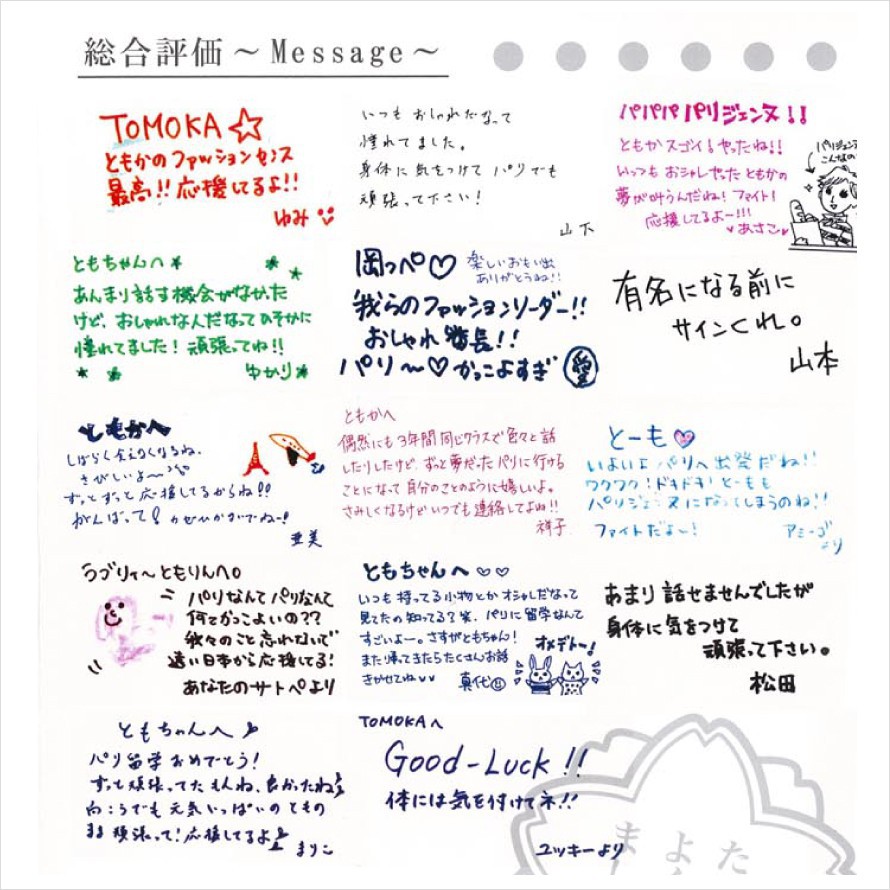 総合評価～Message～
TOMOKA☆
ともかのファッションセンス
最高!!応援してるよ!!
ゆみ
いつもおしゃれだなって
憧れてました。
身体に気をつけてパリでも
頑張って下さい!
山下
パパパパリジェンヌ!!
ともかスゴイ!やったね!!
いっつもおシャレやったともかの
夢が叶うんだね!ファイト!
応援してるよー!!!
♥あさこ♥
パリジェンヌ
こんなの
ともちゃんへ
あんまり話す機会がなかった
けど、おしゃれな人だなってひそかに
憧れてました!頑張ってね!!
ゆかり
岡っぺ♡
楽しいおもい出
ありがとうね!!
我らのファッションリーダー!!
おしゃれ番長!!
パリ～♡かっこよすぎ
愛
有名になる前に
サインくれ。
山本
ともかへ
しばらく会えなくなるね、
さびしいよ～
ずっとずっと応援してるからね!!
がんばって!かぜひかないでねー!
亜美
ともかへ
偶然にも3年間同じクラスで色々と話
したりしたけど、ずっと夢だったパリに行ける
ことになって自分のことのように嬉しいよ。
さみしくなるけどいつでも連絡してよね!!
祥子
とーも♡
いよいよパリへ出発だね!!
ワクワク!ドキドキ!とーもも
パリジェンヌになってしまうのね!!
ファイトだよ～!
アミーゴより
ラブリィ～ともりんへ。
パリなんてパリなんて
何てかっこよいの??
我々のこと忘れないで
遠い日本から応援してる!
あなたのサトペより
ともちゃんへ♡♡
いつも持ってる小物とかオシャレだなって
見てたの知ってる?笑、パリに留学なんて
すごいよー。さすがともちゃん!
また帰ってきたらたくさんお話
きかせてね♥♥
真代
オメデトー!
あまり話せませんでしたが
身体に気をつけて
頑張って下さい。
松田
ともちゃんへ
パリ留学おめでとう!
ずっと頑張ってたもんね、良かったね
向こうでも元気いっぱいのともの
まま頑張って!応援してるよ
まりこ
TOMOKAへ
Good-Luck!!
体には気を付けてネ!!
ユッキーより
た
よ
ま